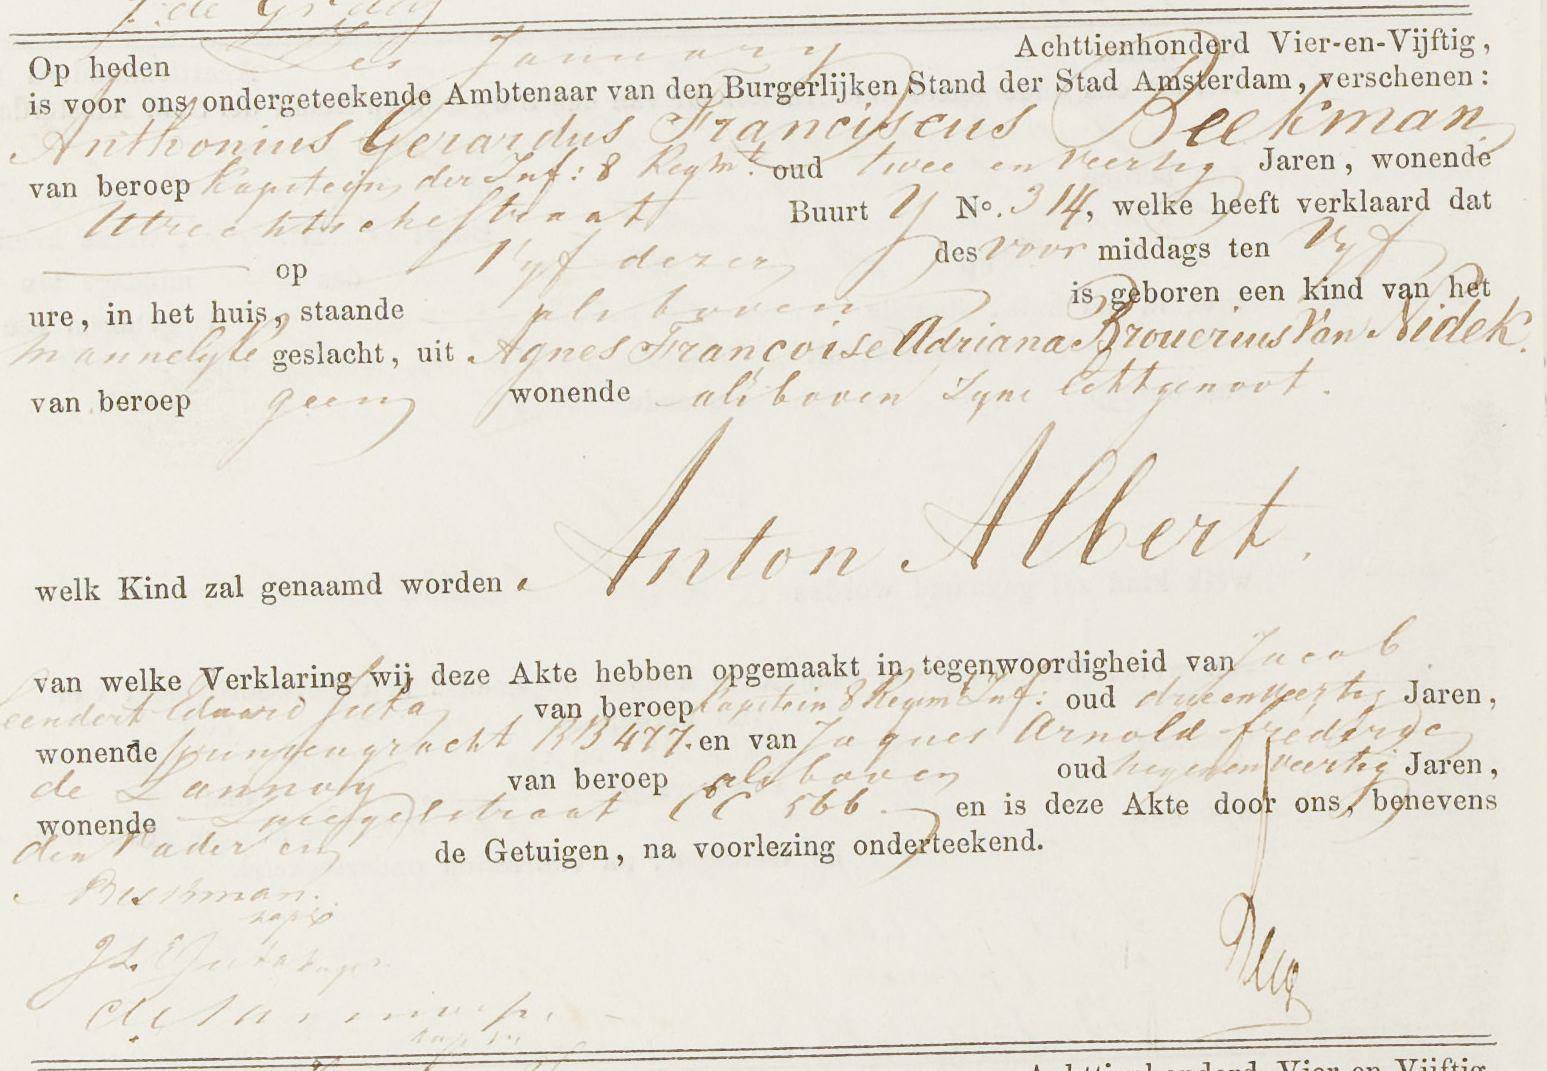 Op heden Zes January Achttienhonderd Vier-en-Vijftig,
is voor ons ondergeteekende Ambtenaar van den Burgerlijken Stand der Stad Amsterdam, verschenen:
Anthonius Gerardus Franciscus Beekman
van beroep Kapitein der Inf: 8 Regmt. oud twee en veertig Jaren, wonende
Utrechtschestraat Buurt Y No. 314, welke heeft verklaard dat
op Vyf dezer des voor middags ten Vyf
ure, in het huis, staande als boven is geboren een kind van het
mannelyke geslacht, uit Agnes Françoise Adriana Brouerius Van Nidek.
van beroep geen wonende als boven Zyne Echtgenoot.
welk Kind zal genaamd worden Anton Albert.
van welke Verklaring wij deze Akte hebben opgemaakt in tegenwoordigheid van Jacob
Leendert Eduard Juta van beroep Kapitein 8 Regim Inf: oud drieenveertig Jaren,
wonende BB 477. en van Jaques Arnold Frederyc
de Lannoy van beroep als boven oud negenenveertig Jaren,
wonende Spiegelstraat CC 566 en is deze Akte door ons, benevens
den Vader en de Getuigen, na voorlezing onderteekend.
Beekman.
kapt
J L E Juta kapt
de Lannoy
Achttienhonderd Vier-en-Vijftig